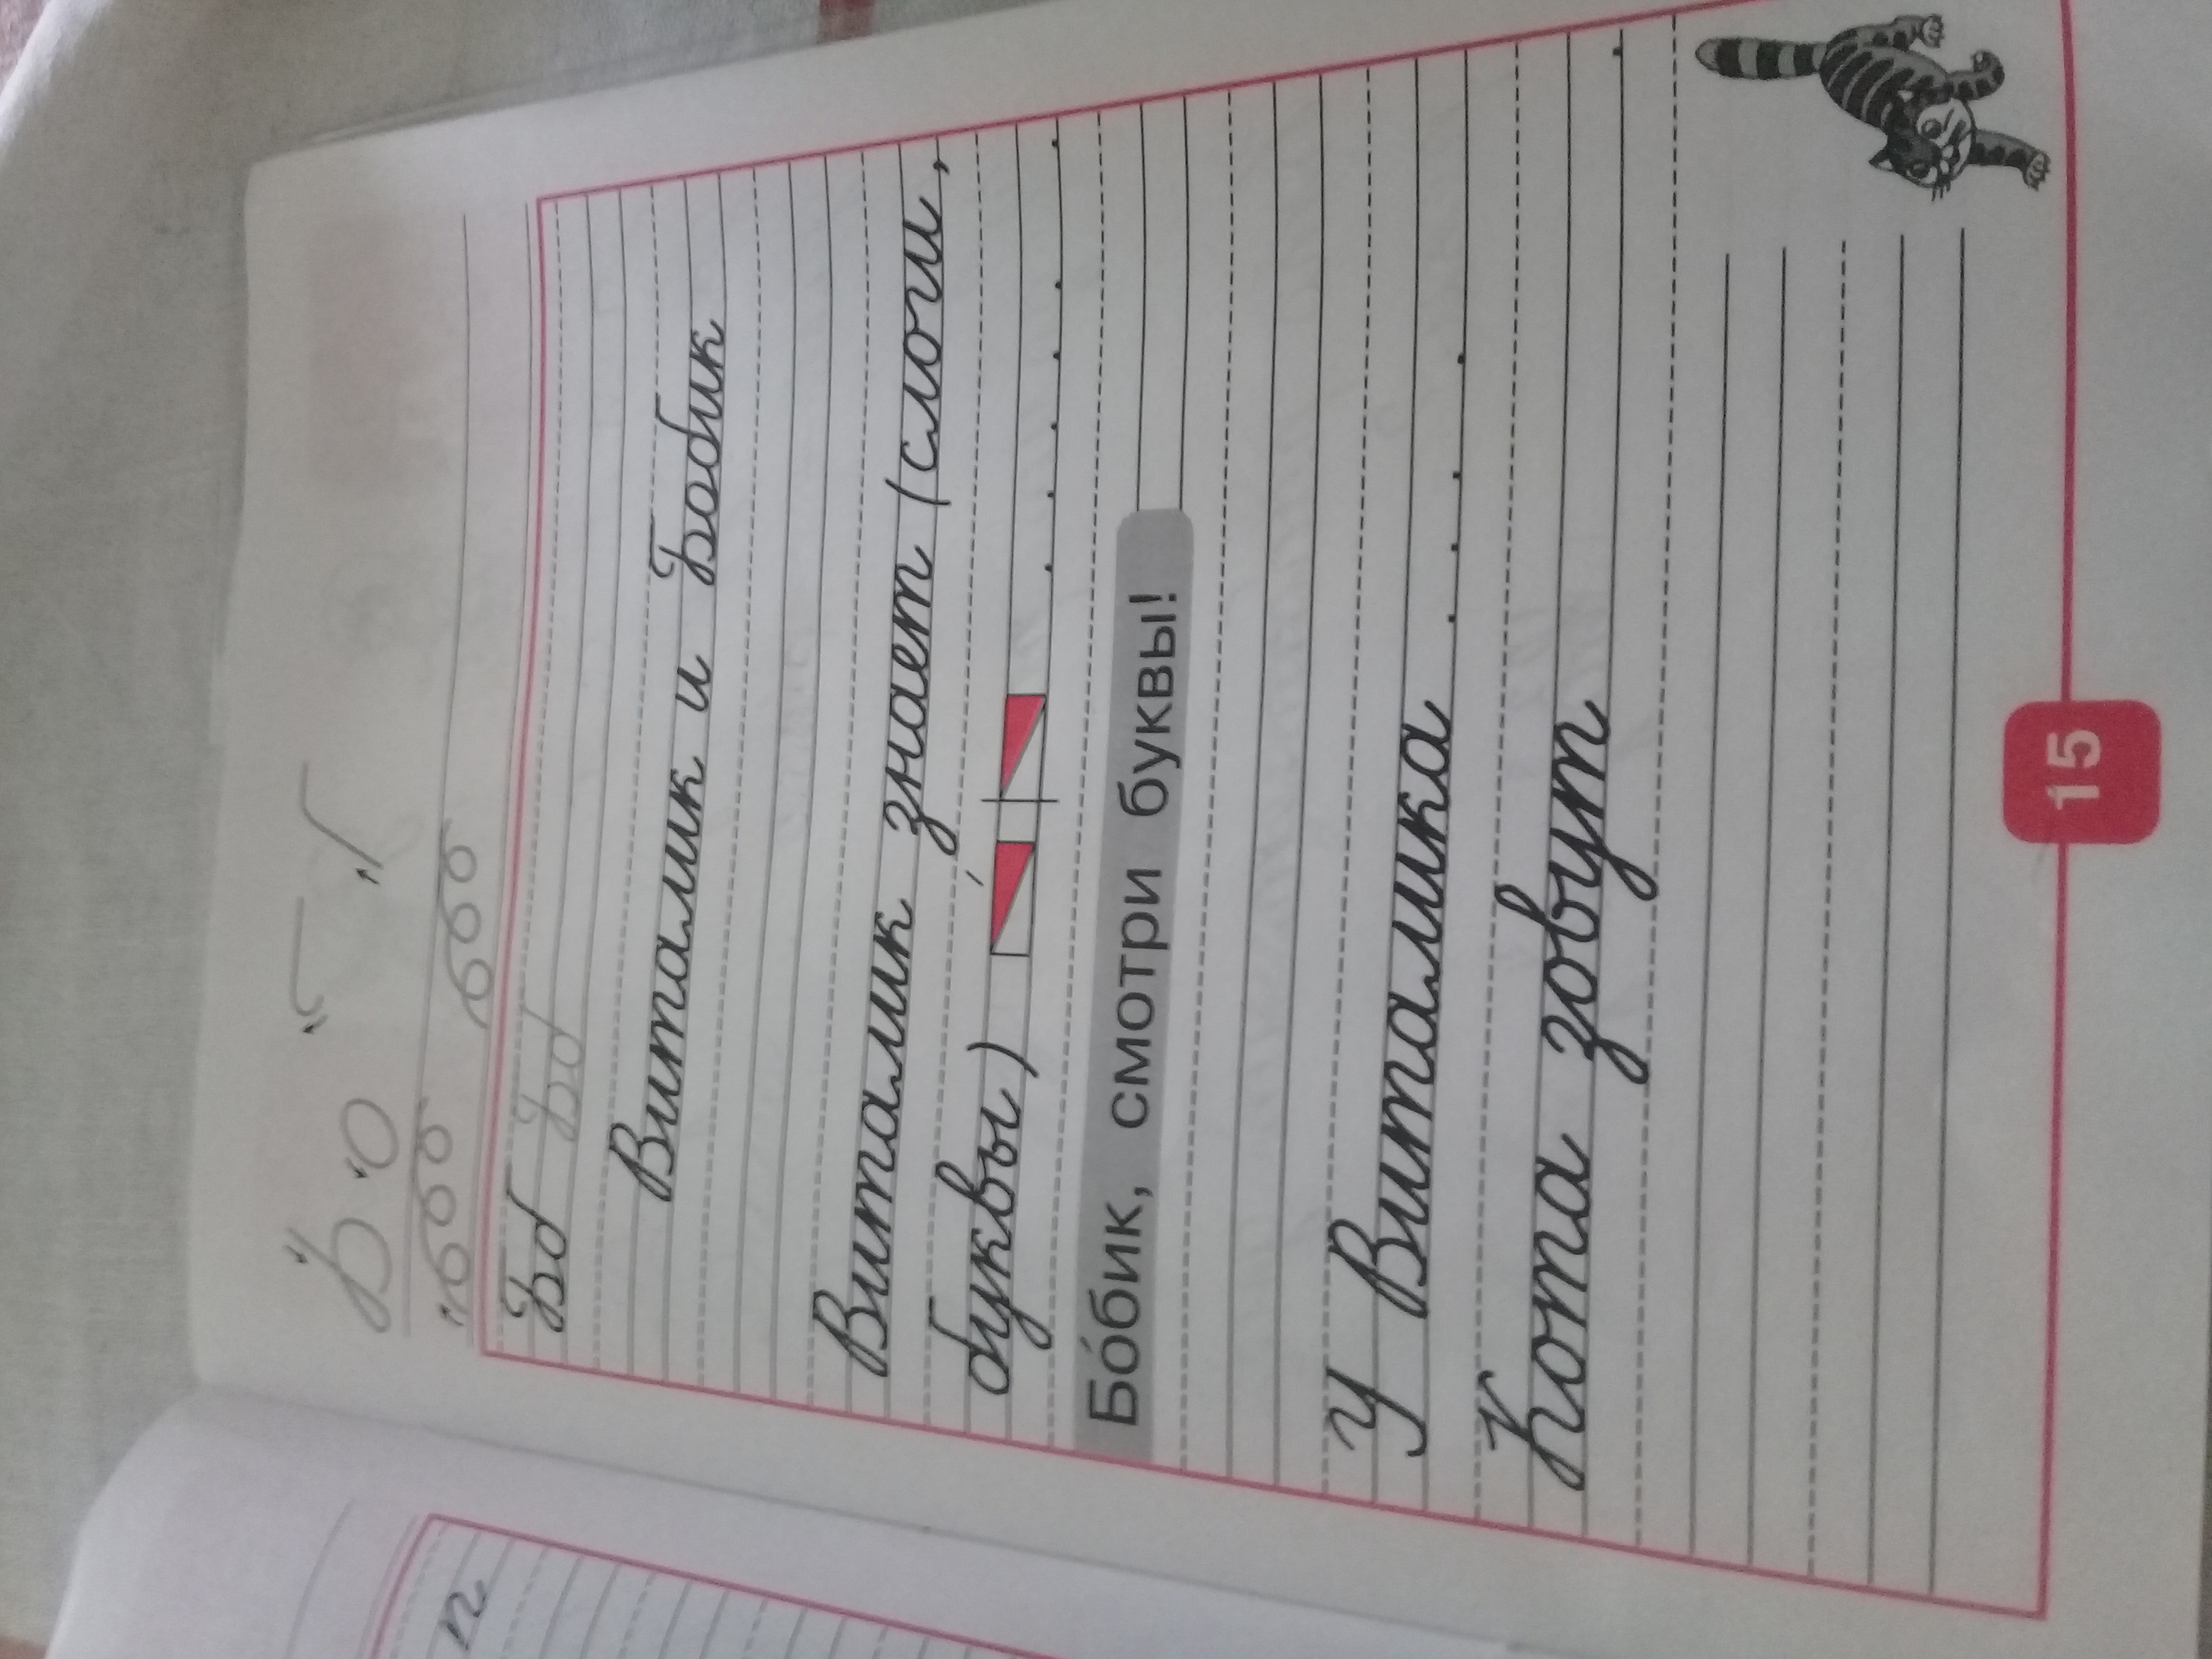 Б б
ббб ббб
Бб Бб
Виталик и Бобик
Виталик знает (слоги,
буквы)
Бо́бик, смотри буквы!
У Виталика . . . . .
Кота зовут .
15
п